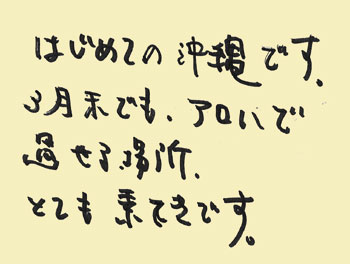 はじめての沖縄です。
3月末でも、アロハで
過せる場所、
とても素てきです。